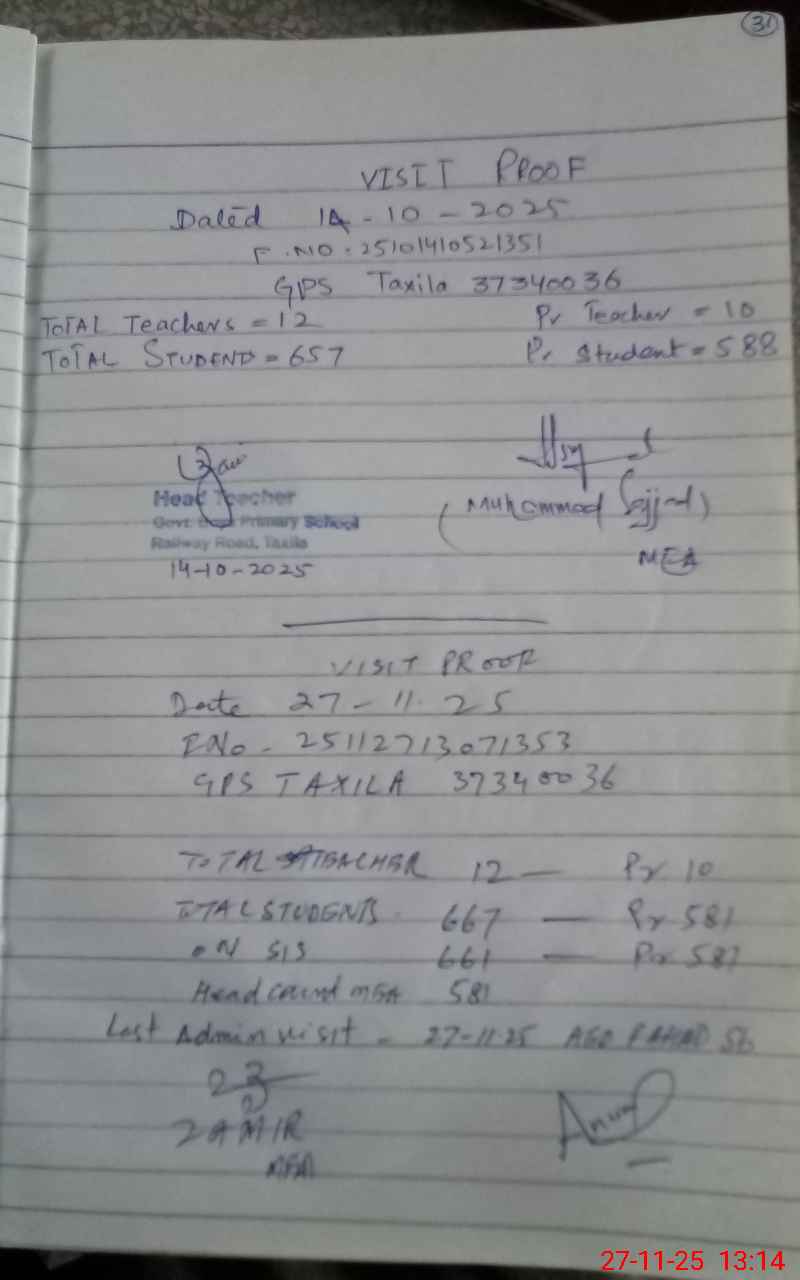 31
VISIT PROOF
Dated 14-10-2025
F.NO. 25101410521351
GPS Taxila 37340036
TOTAL Teachers = 12 Pr Teacher = 10
TOTAL STUDENT = 657 Pr Student = 588
Head Teacher
Govt. Boys Primary School (Muhammad Sajjad)
Railway Road, Taxila MEA
14-10-2025
VISIT PROOF
Date 27-11-25
F No - 25112713071353
GPS TAXILA 37340036
TOTAL TEACHER 12 — Pr 10
TOTAL STUDENTS 667 — Pr 581
ON SIS 661 — Pr 587
Head count MEA 581
Last Admin visit - 27-11-25 AEO FAHAD Sb
ZAMIR
MEA
27-11-25 13:14